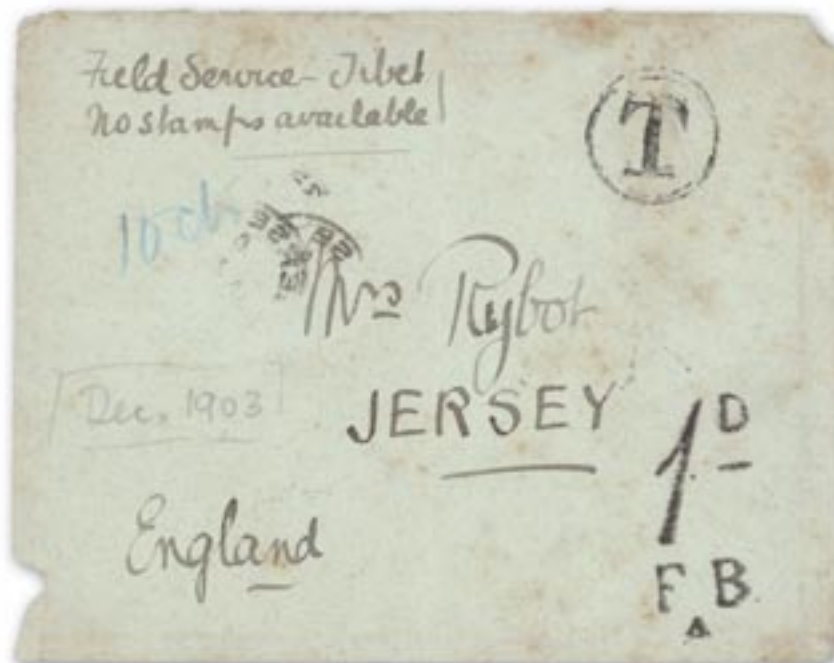 Field Service - Tibet
No stamps available
T
10
Mrs Rybot
Dec. 1903
JERSEY
1D
England
F.B.
A